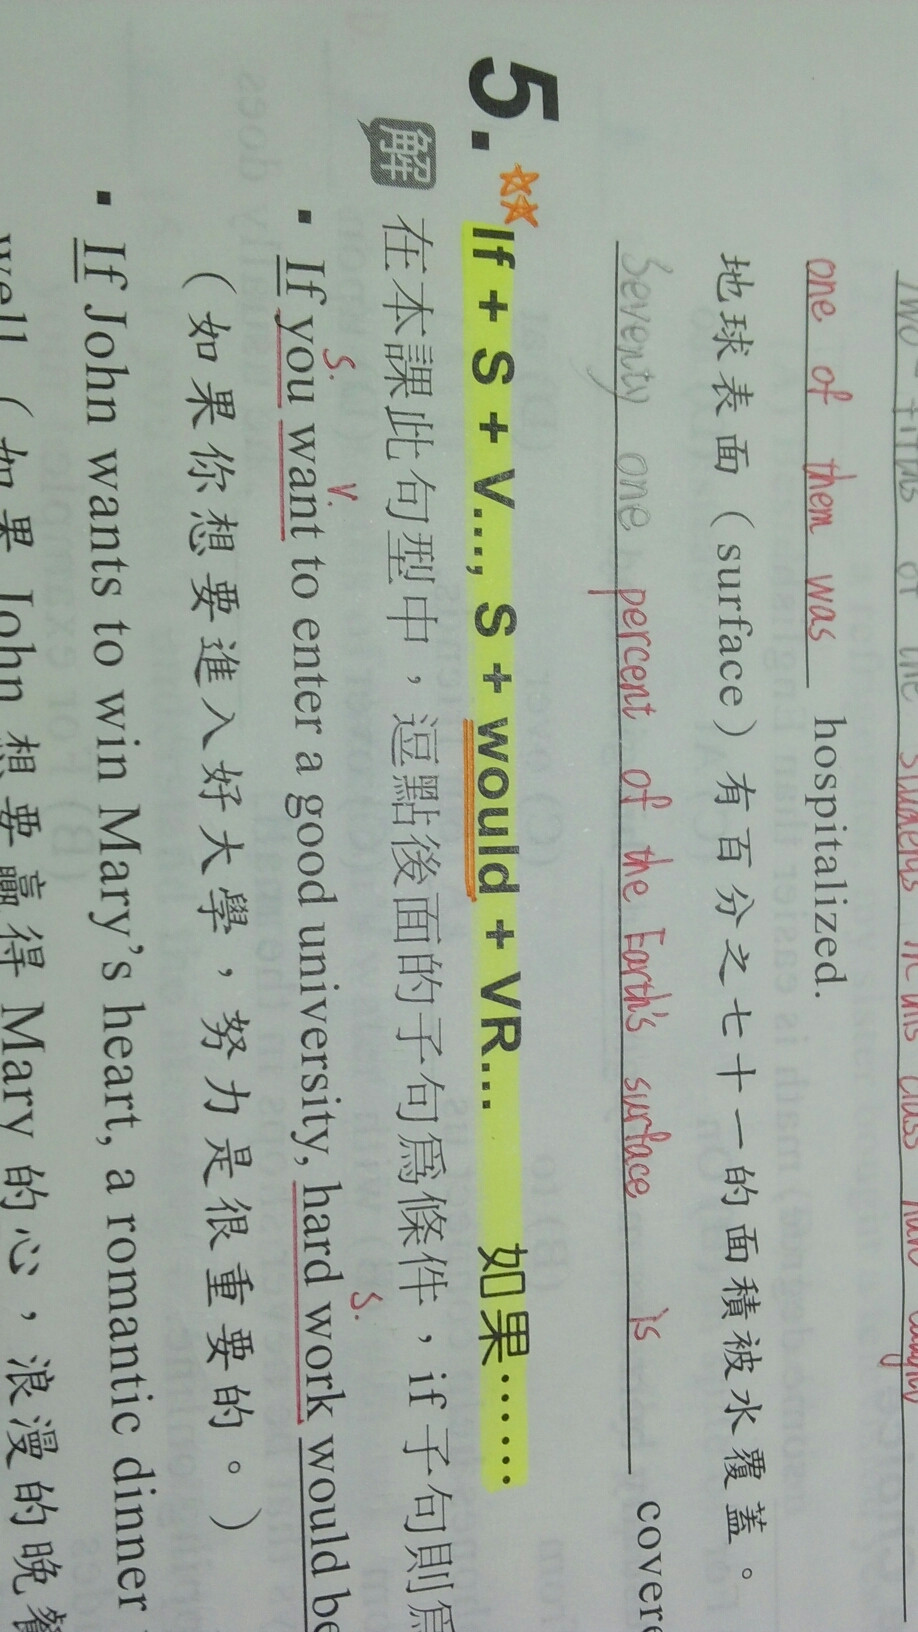 one of them was hospitalized.
地球表面（surface）有百分之七十一的面積被水覆蓋。
Seventy one percent of the Earth's surface is
5. If + S + V..., S + would + VR... 如果……
解 在本課此句型中，逗點後面的子句爲條件，if 子句則爲
s. v. s.
▪ If you want to enter a good university, hard work would be
（如果你想要進入好大學，努力是很重要的。）
▪ If John wants to win Mary's heart, a romantic dinner
well（如果 John 想要贏得 Mary 的心，浪漫的晚餐